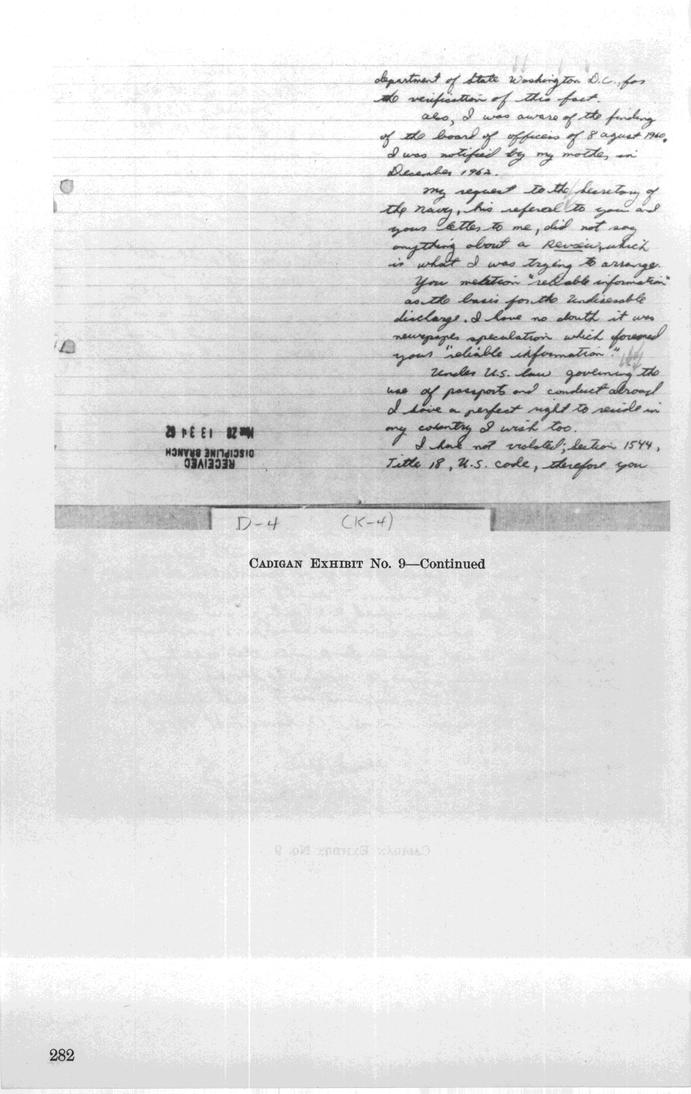 department of State Washington D.C., for
the verification of this fact.
also, I was aware of the finding
of the board of officers of 8 agust 1960,
I was notified by my mother in
December 1962.
My request to the Secretary of
the Navy, his referal to you and
your letter to me, did not say
anything about a Review, which
is what I was trying to arrange.
You metition "reliable information"
as the basis for the undiserable
discharge. I have no douth it was
newspaper speculation which formed
your "reliable information".
Under U.S. law governing the
use of passports and conduct abroad
I have a perfect right to reside in
any country I wish too.
I have not violated; Section 1544,
Title 18, U.S. code, therefore you
RECEIVED
DISCIPLINE BRANCH
MAR 28 13 34 62
D-4 (K-4)
CADIGAN EXHIBIT No. 9—Continued
CADIGAN EXHIBIT NO. 9
282